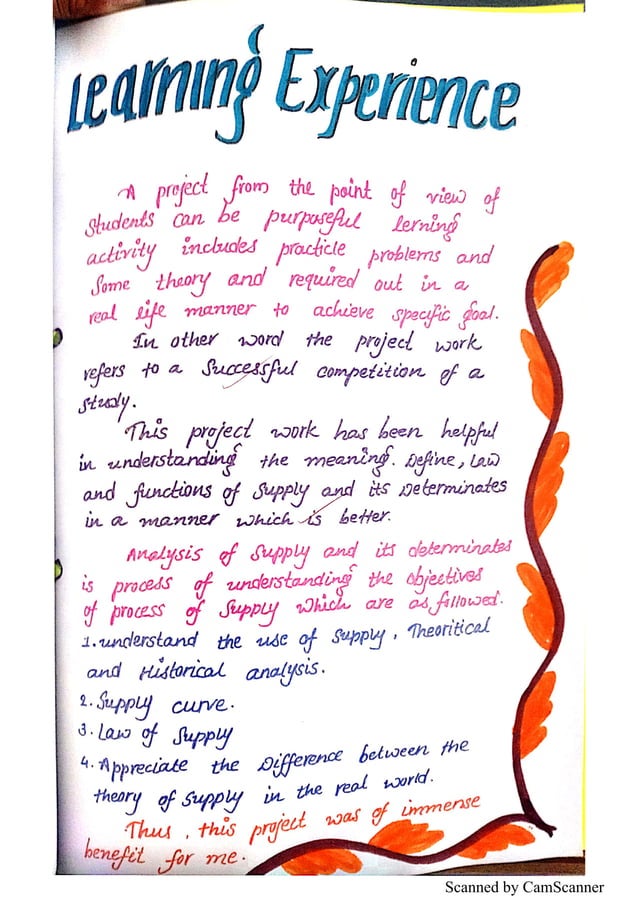 Learning Experience
A project from the point of view of
students can be purposeful lerning
activity includes practicle problems and
some theory and required out in a
real life manner to achieve specific goal.
In other word the project work
refers to a successful competition of a
study.
This project work has been helpful
in understanding the meaning. Define, Law
and functions of supply and its Determinates
in a manner which is better.
Analysis of supply and its determinates
is process of understanding the objectives
of process of supply which are as followed.
1. understand the use of supply, Theoritical
and Historical analysis.
2. Supply curve.
3. Law of Supply
4. Appreciate the Difference between the
theory of supply in the real world.
Thus, this project was of immense
benefit for me.
Scanned by CamScanner